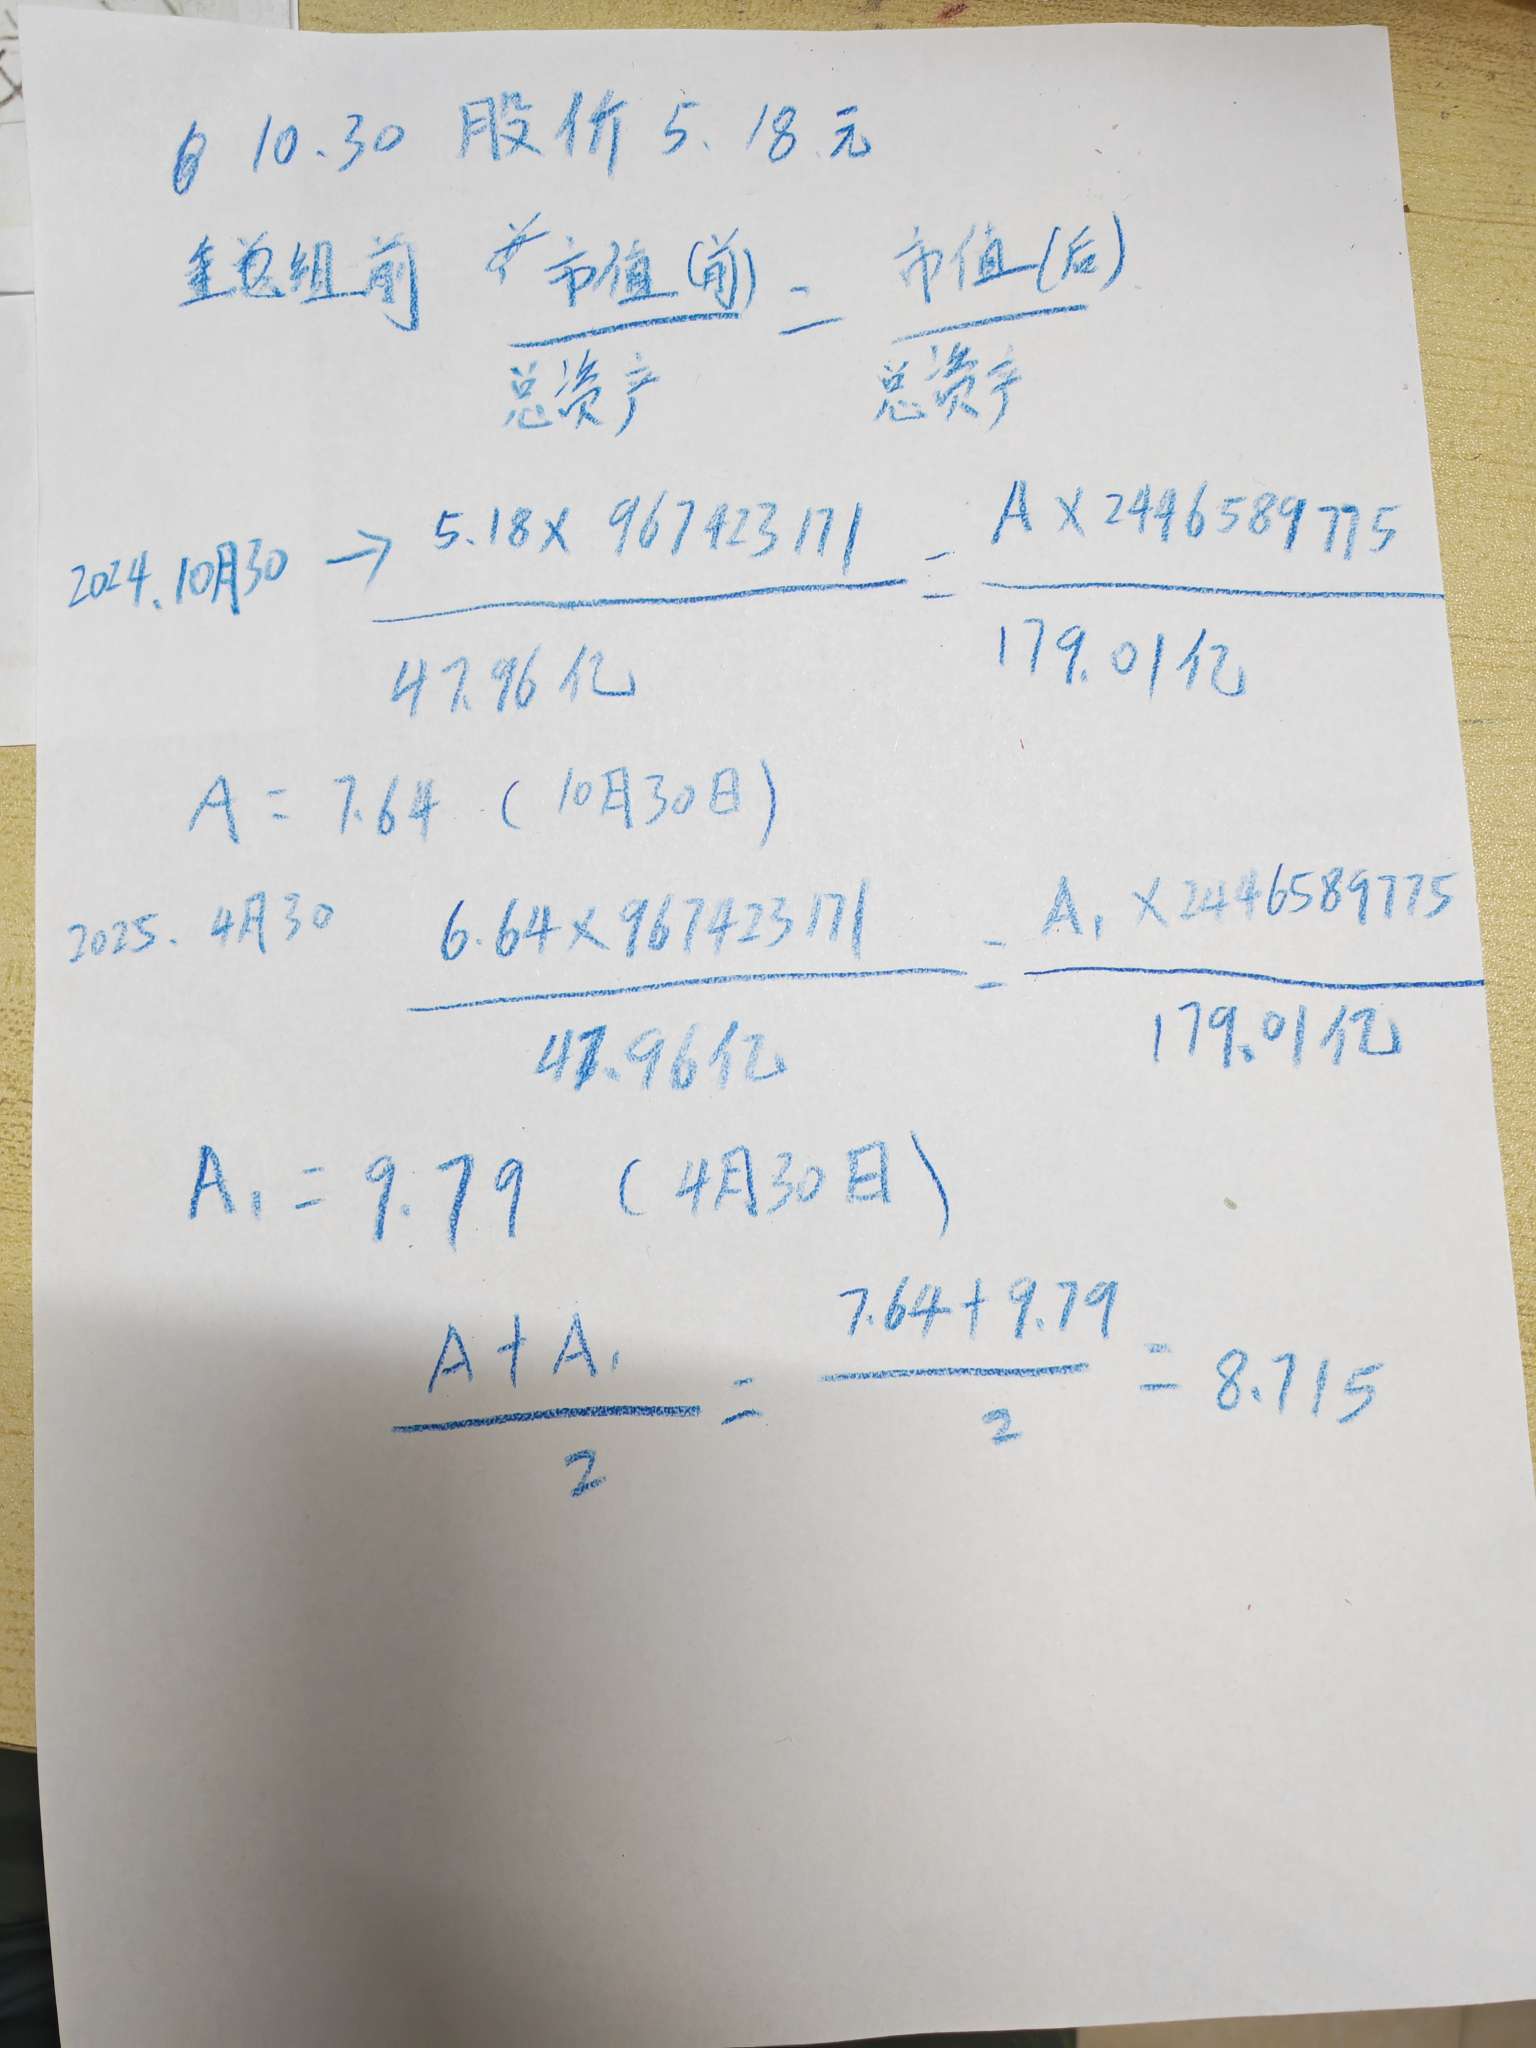 10.30 股价 5.18元
重组前 市值(前) = 市值(后)
总资产 总资产
2024.10月30 → 5.18×967423171 = A×2446589775
47.96亿 179.01亿
A = 7.64 (10月30日)
2025.4月30 6.64×967423171 = A₁×2446589775
47.96亿 179.01亿
A₁ = 9.79 (4月30日)
A+A₁ = 7.64+9.79 = 8.715
2 2